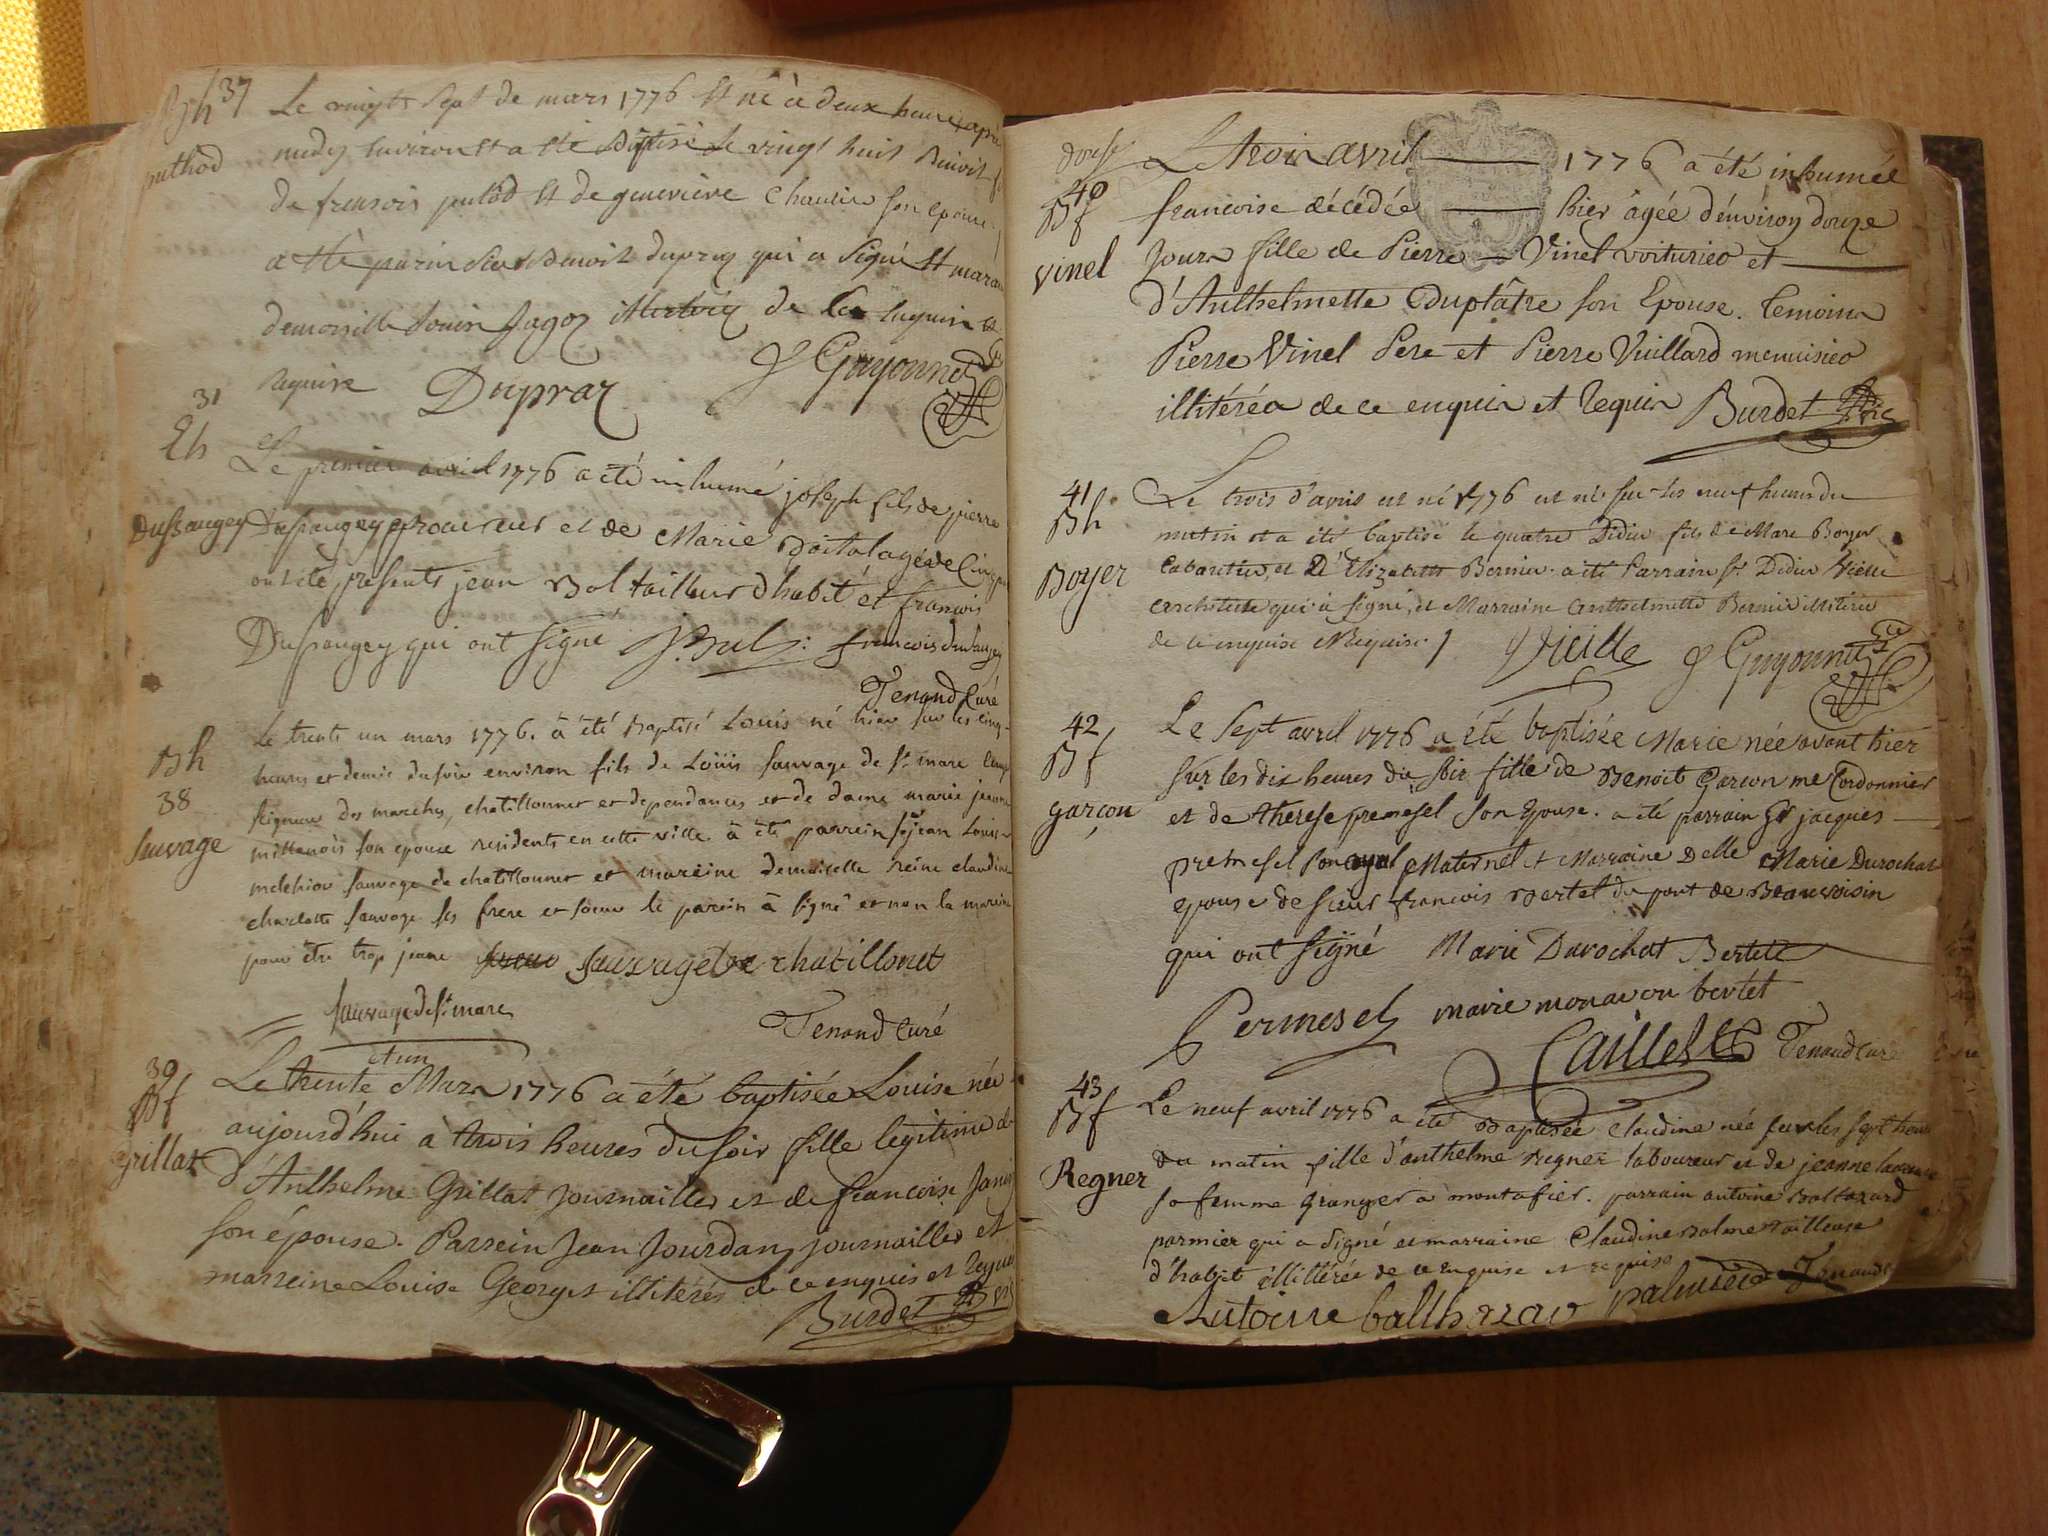 Bh 37
puthod
Le vingt Sept de mars 1776 Est né à deux heures après
midy Environ Et a été Baptisé Le vingt huit Benoit
de fransois putod Et de geneviève Chaulin son epouse
a été parin Sieur Benoit dupraz qui a Signé Et maraine
demoiselle Louise Jagoz illitérée de ce enquise Et
requise Dupraz J Guyonnet
31
Eh
Dussaugey
Le premier avril 1776 a été inhumé joseph fils de pierre
Dussaugey procureur et de Marie agé de Cinq
ont été présents jean Bol tailleur d'habit et francois
Dussaugey qui ont signé J. Bul: francois dusaugey
Tenand Curé
Bh
38
Sauvage
Le trente un mars 1776. à été Baptisé Louis né hier sur les cinq
heures et demie du soir environ fils de Loüis Sauvage de St. marc
Seigneur des marches, chatillonnet et dependances et de dame marie jeanne
millanois son epouse residents en cette ville à été parrein Sr. jean Louis
melchior sauvage de chatillonnet et mareine demoiselle reine claudine
charlotte sauvage ses frere et soeur le parein à signé et non la mareine
pour être trop jeune sauvage de chatillonet
sauvage de St. marc
Tenand Curé
39
Bf
Grillat
et un
Le trente Mars 1776 a été baptisée Louise née
aujourd'hui à trois heures du soir fille legitime de
d'Anthelme Grillat journaillier et de francoise
son épouse. Parrein Jean Jourdan journaillier et
marreine Louise Georges illitérés de ce enquis et requis
Burdet Vic
douse
40
Bf
Vinel
Le trois avril 1776 a été inhumée
francoise décédée hier agée d'énviron douze
Jours fille de Pierre Vinel voiturier et
d'Anthelmette Duplâtre son Epouse. Temoins
Pierre Vinel Pere et Pierre Vuillard menuisier
illitérés de ce enquis et requis Burdet Vic
41
Bh
Boyer
Le trois d'avril est né 1776 est né sur les neuf heures du
matin et a été baptisé le quatre Didier fils de Marc Boyer
Cabaretier, et D'Elizabeth Bernier. a été Parrain Sr. Didier Vielle
architecte qui à signé, et Marraine Anthelmette Bernier illitérée
de ce enquise Requise. Vieille J Guyonnet
42
Bf
garçon
Le Sept avril 1776 a été baptisée Marie née avant hier
sur les dix heures du soir fille de Benoit Garçon me Cordonnier
et de therese premesel son epouse. a été parrain Sr jacques
premesel son ayul Maternel et Marraine Delle Marie Durochat
epouse de sieur francois Bertet du pont de Beauvoisin
qui ont signé Marie Durochat Bertett
Permesel marie monavon bertet
Caillet Tenand curé
43
Bf
Regner
Le neuf avril 1776 a été Baptisée claudine née sur les sept heures
du matin fille d'anthelme regner laboureur et de jeanne
sa femme granger a montafier. parrain antoine Baltazard
parmier qui a signé et marraine Claudine Balme tailleuse
d'habit illitérée de ce enquise et requise
Antoine balthazar Tenand